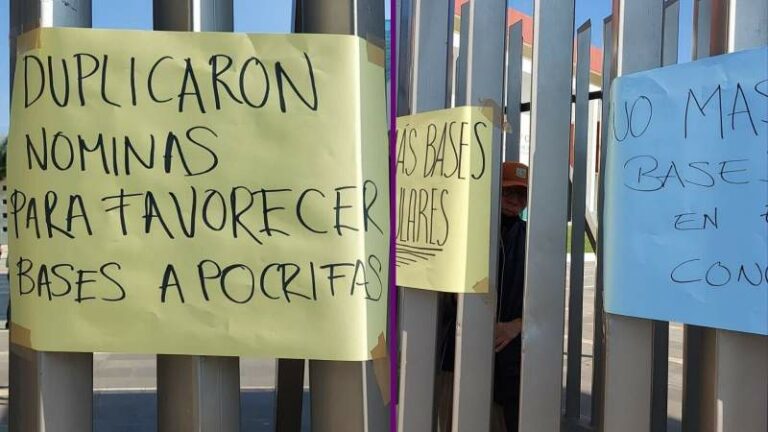 DUPLICARON
NOMINAS
PARA FAVORECER
BASES APOCRIFAS
BASES
MAS
BASE
EN